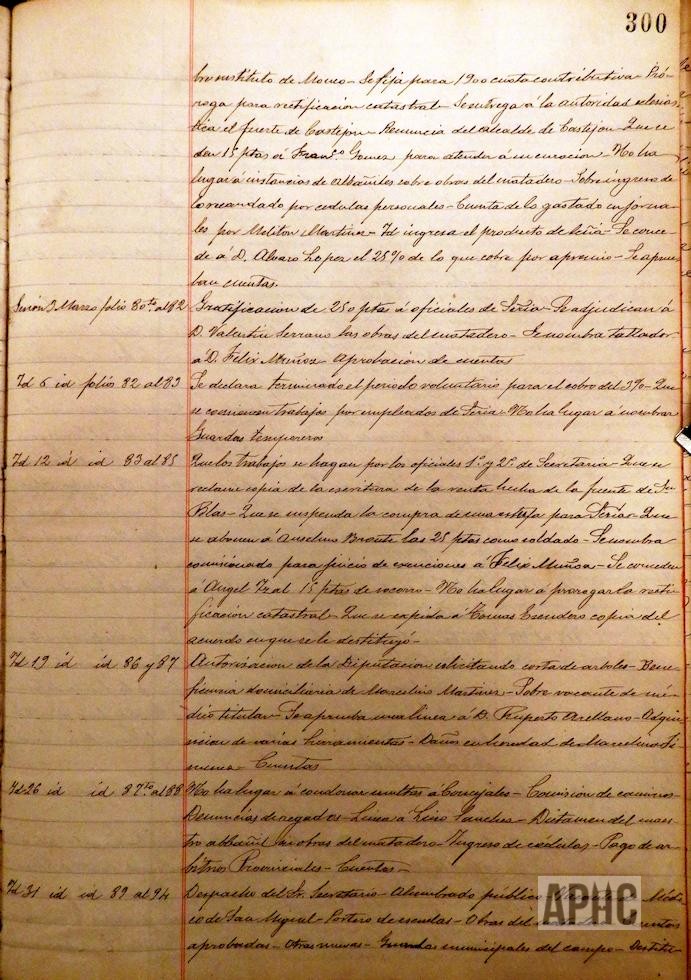 300
bro instituto de Monco - Se fija para 1900 cuota contributiva - Pró-
rroga para rectificacion catastral - Se entrega á la autoridad eclesiás-
tica el fuerte de Castejon - Renuncia del alcalde de Castejon - Que se
den 15 ptas á Fran.co Gomez para atender á su curacion - No ha
lugar á instancias de Albañiles sobre obras del matadero - Sobre ingreso de
lo recaudado por cedulas personales - Cuenta de lo gastado en jorna-
les por Meliton Martinez - Id ingresa el producto de leña - Se conce-
de á D. Alvaro Lopez el 25% de lo que cobre por apremio - Se aprue-
ban cuentas.
Sesion 3 Marzo folio 80 to al 82 Gratificacion de 250 ptas á oficiales de Sría - Se adjudican á
D. Valentin Serrano las obras del matadero - Se nombra tallador
a D. Felix Muñoz - Aprobacion de cuentas
Id 5 id folios 82 al 83 Se declara terminado el periodo voluntario para el cobro del 3% - Que
se comiencen trabajos por empleados de Sría - No ha lugar a nombrar
Guardas temporeros
Id 12 id id 83 al 85 Que los trabajos se hagan por los oficiales 1º y 2º de Secretaria - Que se
reclame copia de la escritura de la venta hecha de la fuente de Sn
Blas - Que se suspenda la compra de una estufa para Sría - Que
se abonen á Anselmo Bronte las 25 ptas como soldado - Se nombra
comisionado para juicio de exenciones á Felix Muñoz - Se conceden
á Angel Izal 15 ptas de socorro - No ha lugar á prorogar la recti-
ficacion catastral - Que se expida á Tomas Escudero copia del
acuerdo en que se le destituyó -
Id 19 id id 86 y 87 Autorizacion de la Diputacion solicitando corta de arboles - Bene-
ficencia domiciliaria de Marcelino Martinez - Sobre vacante de mé-
dico titular - Se aprueba una línea á D. Ruperto Arellano - Adqui-
sicion de varias herramientas - Daños en heredad de Marcelino Ji-
menez - Cuentas
Id 26 id id 87 to al 88 No ha lugar á condonar multas a Concejales - Comision de caminos
Denuncias de regados - Linea á Lino Sanchez - Dictamen del maes-
tro albañil en obras del matadero - Ingreso de cédulas - Pago de ar-
bitrios Provinciales - Cuentas -
Id 31 id id 89 al 94 Despacho del Sr. Secretario - Alumbrado público - Médi-
co de San Miguel - Portero de escuelas - Obras del
aprobadas - Otras nuevas - Guardas municipales del campo - Destitu-
APHC